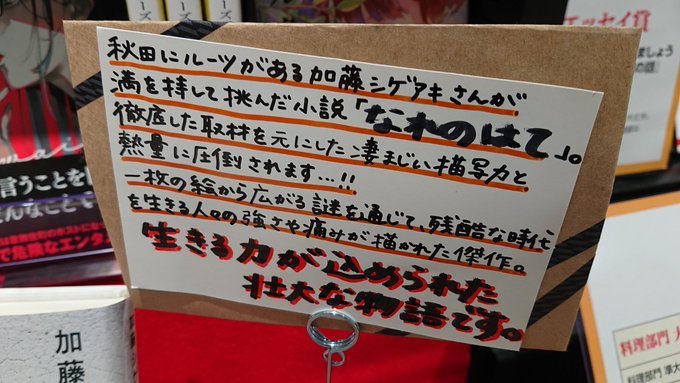 秋田にルーツがある加藤シゲアキさんが
満を持して挑んだ小説「なれのはて」。
徹底した取材を元にした凄まじい描写力と
熱量に圧倒されます…!!
一枚の絵から広がる謎を通じて、残酷な時代
を生きる人々の強さや痛みが描かれた傑作。
生きる力が込められた
壮大な物語です。
加藤
エッセイ賞
料理部門
料理部門 準大